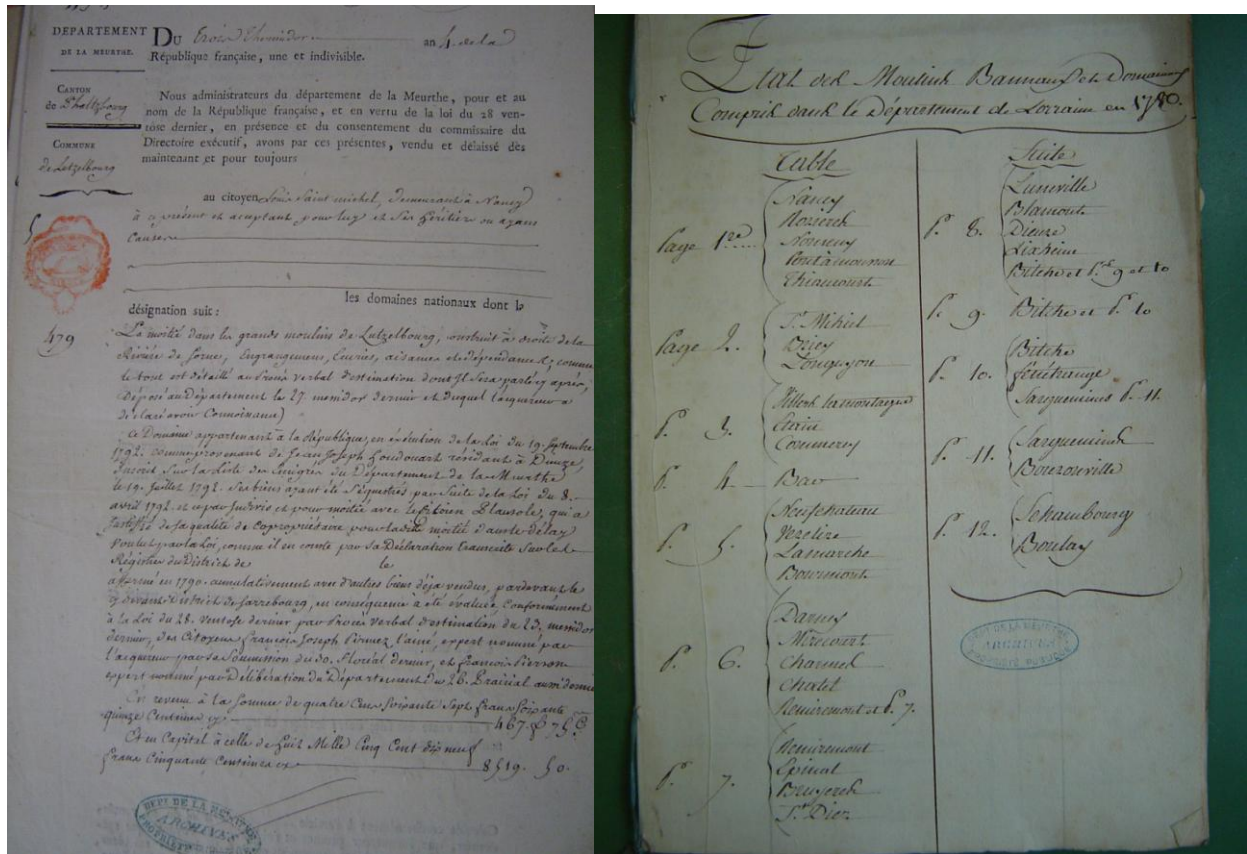 DEPARTEMENT
DE LA MEURTHE.
Du trois Thermidor an 4 de la
République française, une et indivisible.
CANTON
de Phaltzbourg
COMMUNE
de Lutzelbourg
Nous administrateurs du département de la Meurthe, pour et au
nom de la République française, et en vertu de la loi du 28 ven-
tôse dernier, en présence et du consentement du commissaire du
Directoire exécutif, avons par ces présentes, vendu et délaissé dès
maintenant et pour toujours
au citoyen Louis Saint michel, demeurant à Nancy
à ce présent et acceptant, pour luy et ses héritiers ou ayans
Cause
les domaines nationaux dont la
désignation suit :
479
La moitié dans les grands moulins de Lutzelbourg, construit à droite de la
Rivière de Sorne, Engrangemens, Ecuries, aisances et dépendances, comme
le tout est détaillé au Procès verbal d'estimation dont Il sera parlé cy après,
Déposé au Département le 27 messidor dernier et duquel l'acquereur a
déclaré avoir Connoissance
Ce Domaine appartenant à la République, en exécution de la Loi du 19 Septembre
1792. comme provenant de Jean Joseph Houdouart résidant à Dieuze,
Inscrit sur la Liste des Emigrés du Département de la Meurthe
le 19. Juillet 1792. Ses biens ayant été séquestrés par Suite de la Loi du 8.
avril 1792. et ce par Indivis et pour moitié avec le Citoien Plausole, qui a
Justifié de sa qualité de Copropriétaire pour la dite moitié dans le Délay
Voulut par la Loi, comme il en conste par sa Déclaration transcrite sur le
Régistre du District de le
affermé en 1790. cumulativement avec d'autres biens déja vendus, pardevant le
cy devant District de Sarrebourg, en conséquence a été évaluée Conformément
à la Loi du 28. Ventose dernier par Procès Verbal d'estimation du 23. messidor
dernier, des Citoyens François Joseph Pirmez l'ainé, expert nommé par
l'acquereur par sa Soumission du 30. floréal dernier, et François Pierron
expert nommé par Délibération du Département du 28. Prairial aussi dernier
En revenu à la Somme de quatre Cens Soixante Sept francs Soixante
quinze Centimes cy 467. f 75 C
Et en Capital à celle de huit Mille Cinq Cent dix neuf
francs Cinquante Centimes cy 8519. 50.
DEPT DE LA MEURTHE
ARCHIVES
PROPRIÉTÉ PUBLIQUE
Etat des Moulins Banneaux et Domaines
Compris dans le Département de Lorraine en 1780.
Table
Page 1re
Nancy
Rozieres
Nomeny
Pontamousson
Thiaucourt
Page 2.
St. Mihiel
Briey
Longuyon
P. 3.
Villers lamontagne
Etain
Commercy
P. 4
Bar
P. 5.
Neufchateau
Vezelize
Lamarche
Bourmont
P. 6.
Darney
Mirecourt
Charmes
Chatel
Remiremont et P. 7.
P. 7.
Remiremont
Epinal
Bruyeres
St. Diez
Suite
P. 8.
Luneville
Blamont
Dieuze
Lixheim
Bitche et P.e 9 et 10
P. 9. Bitche et P. 10
P. 10.
Bitche
fénétrange
Sarguemines P. 11.
P. 11.
Sarguemines
Bouzonville
P. 12.
Schambourg
Boulay
DEPT DE LA MEURTHE
ARCHIVES
PROPRIÉTÉ PUBLIQUE